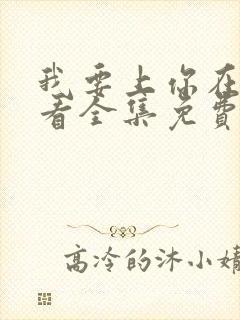 我要上你在
看全集免费
高冷的沐小婧